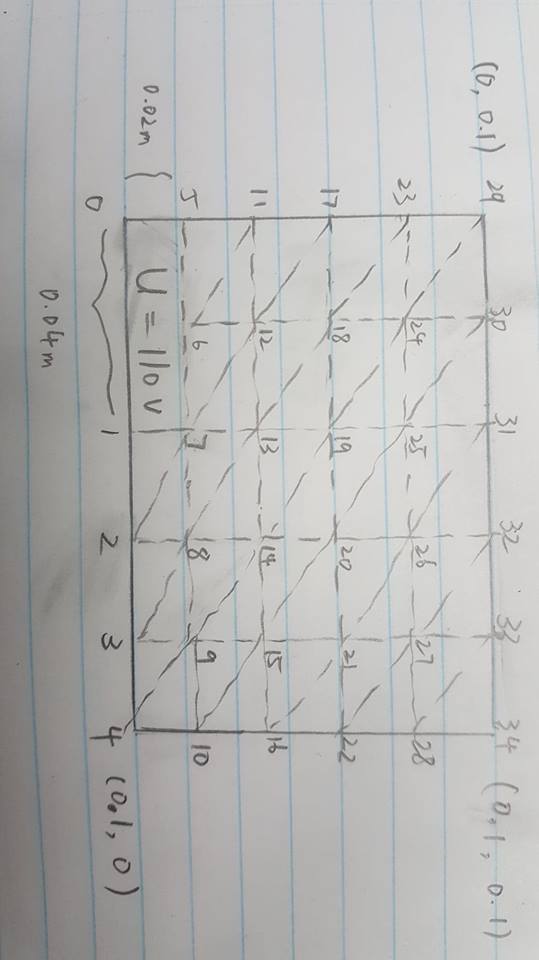 (0, 0.1) 29 30 31 32 33 34 (0.1, 0.1)
23 24 25 26 27 28
17 18 19 20 21 22
11 12 13 14 15 16
5 6 7 8 9 10
0.02m U = 110 V
0 1 2 3 4 (0.1, 0)
0.04m